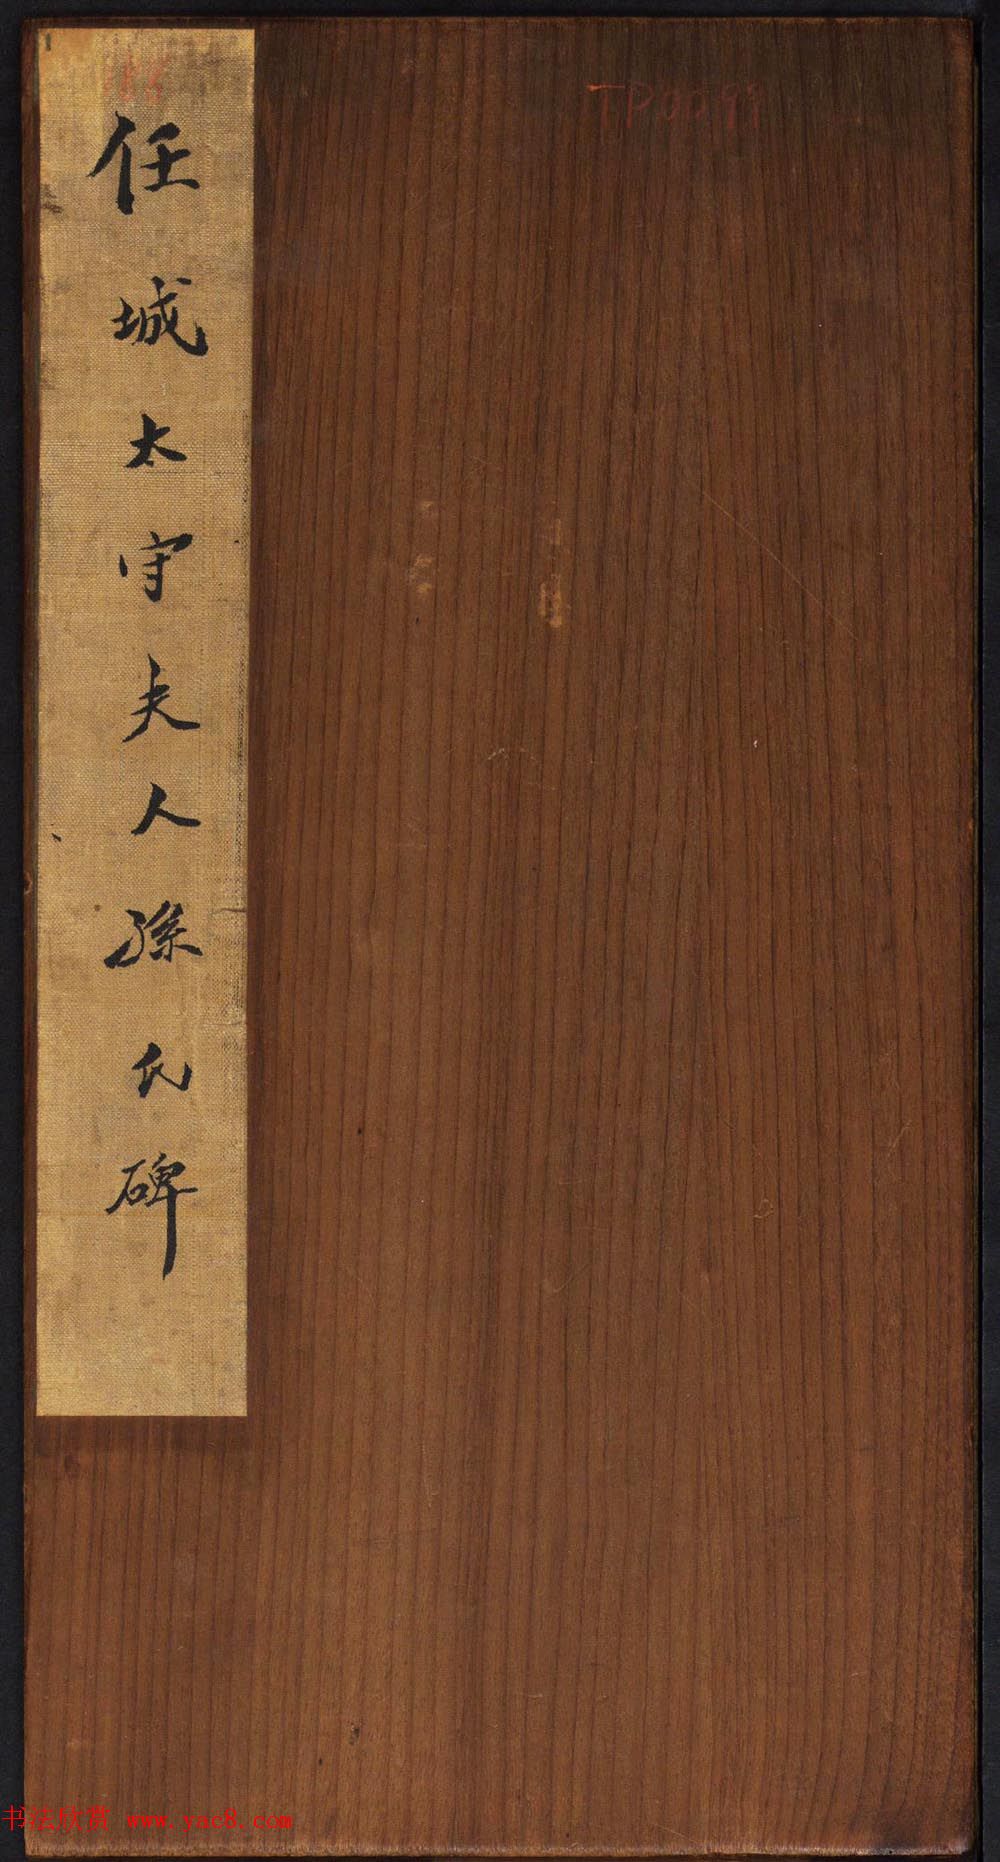 任城太守夫人孫氏碑
TP0099
书法欣赏 www.yac8.com